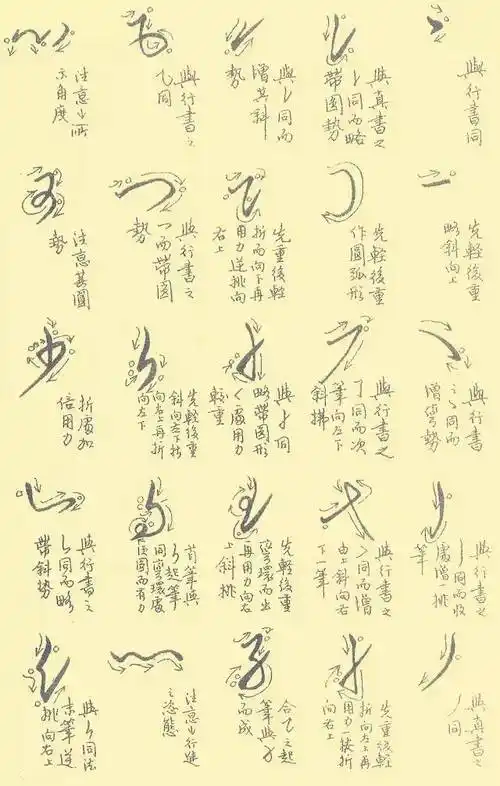 與行書同
與真書之
㇄同而略
帶圓勢
與㇄同而
增其斜
勢
與行書之
乁同
注意㇃所
示角度
先輕後重
略斜向上
先輕後重
作圓弧形
先重後輕
折而向下再
用力逆挑向
右上
與行書之
乛而帶圓
勢
注意其圓
勢
同而
增彎勢
與行書之
㇆同而次
筆向左下
斜拂
同
略帶圓形
處用力
較重
先輕後重
斜向左下
向右上再折
向左下
折處加
倍用力
與行書之
亅同而收
處增一挑
筆
與行書之
同而增
由上斜向右
下一筆
先輕後重
彎環而出
再用力向右
上斜挑
首筆與
起筆
同彎環處
圓而有力
與行書之
㇄同而略
帶斜勢
與真書之
丿同
先重後輕
折向左上再
用力一挨折
向右上
合乙之起
筆與
而成
注意㇃行進
之恣態
與㇄同法
末筆逆
挑向右上